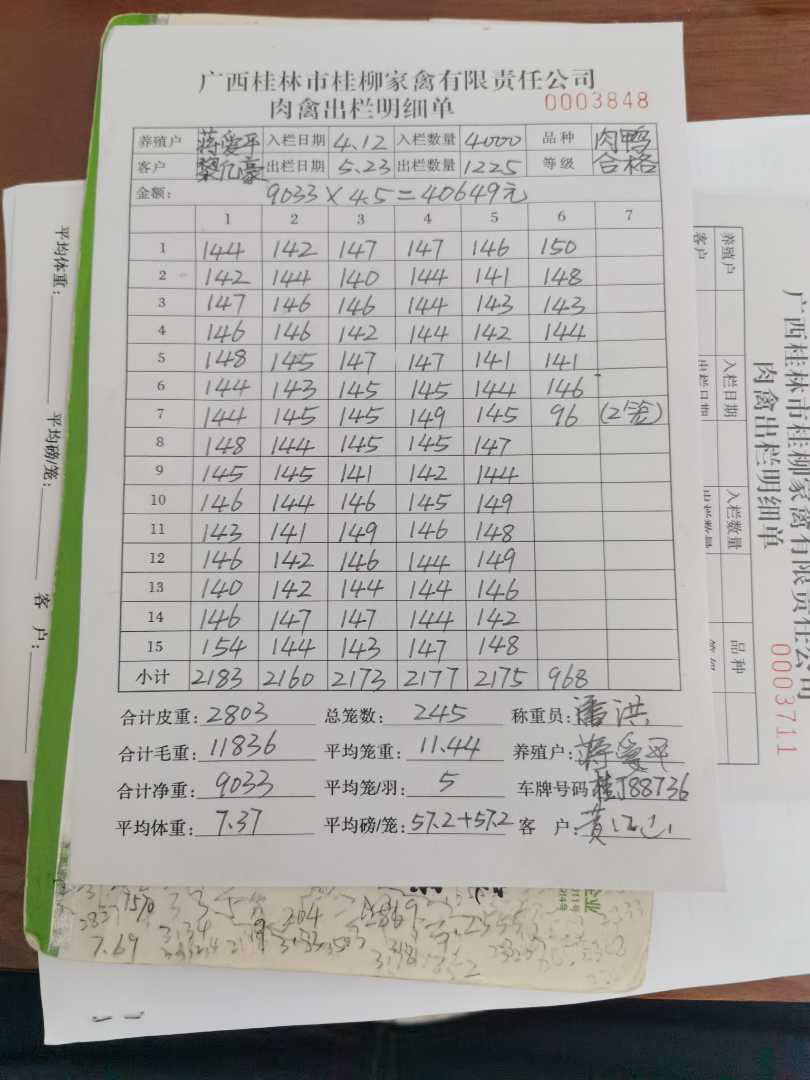 广西桂林市桂柳家禽有限责任公司
肉禽出栏明细单 0003848
养殖户 蒋爱平 入栏日期 4.12 入栏数量 4000 品种 肉鸭
客户 黎亿豪 出栏日期 5.23 出栏数量 1225 等级 合格
金额: 9033×4.5=40649元
1 2 3 4 5 6 7
1 144 142 147 147 146 150
2 142 144 140 144 141 148
3 147 146 146 144 143 143
4 146 146 142 144 142 144
5 148 145 147 147 141 141
6 144 143 145 145 144 146
7 144 145 145 149 145 96 (2笼)
8 148 144 145 145 147
9 145 145 141 142 144
10 146 144 146 145 149
11 143 141 149 146 148
12 146 142 146 144 149
13 140 142 144 144 146
14 146 147 147 144 142
15 154 144 143 147 148
小计 2183 2160 2173 2177 2175 968
合计皮重: 2803 总笼数: 245 称重员: 潘洪
合计毛重: 11836 平均笼重: 11.44 养殖户: 蒋爱平
合计净重: 9033 平均笼/羽: 5 车牌号码 桂J88736
平均体重: 7.37 平均磅/笼: 57.2+57.2 客户:
平均体重: 平均磅/笼: 客户:
广西桂林市桂柳家禽有限责任公司
肉禽出栏明细单
0003711
养殖户 入栏日期 入栏数量 品种
客户 出栏日期
7.69